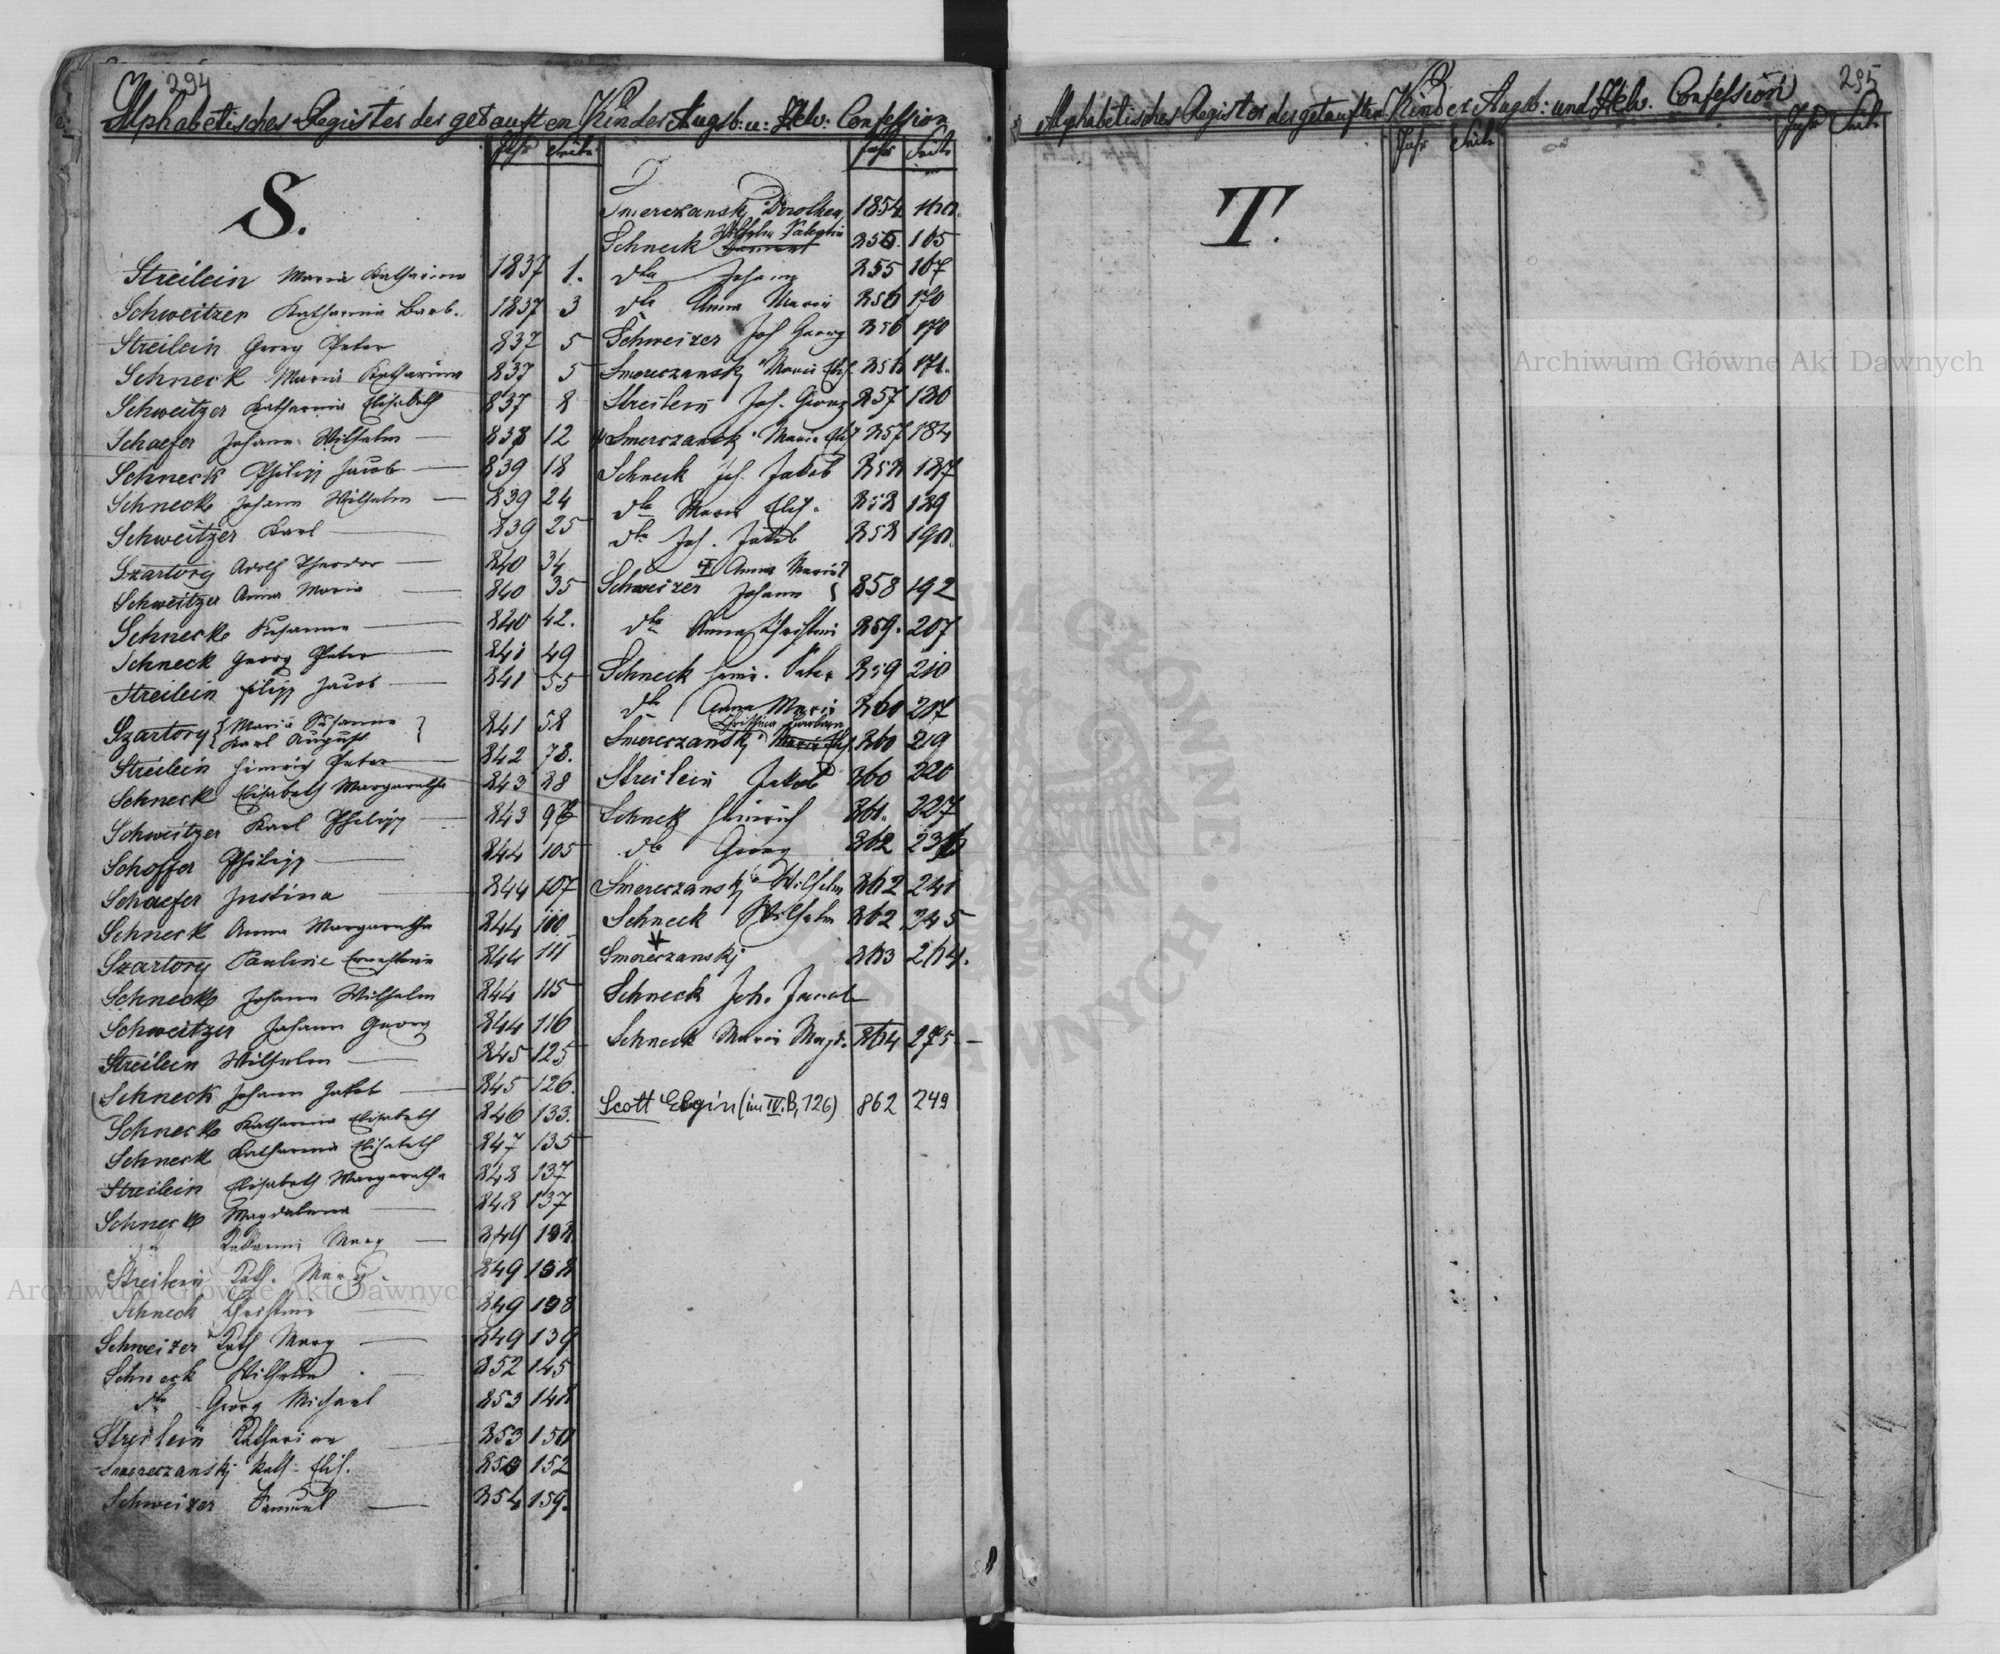 294
Alphabetisches Register der getauften Kinder Augsb: u: Helv: Confession
Jahr Seite
S.
Streilein Maria Katharina 1837 1.
Schweitzer Katharina Barb. 1837 3
Streilein Georg Peter 837 5
Schneck Maria Katharina 837 5
Schweitzer Katharina Elisabeth 837 8
Schaefer Johann Wilhelm 838 12
Schneck Philipp Jacob 839 18
Schneck Johann Wilhelm 839 24
Schweitzer Karl 839 25
Szartory Adolf Theodor 840 34
Schweitzer Anna Maria 840 35
Schneck Susanna 840 42.
Schneck Georg Peter 841 49
Streilein Filipp Jacob 841 55
Szartory { Maria Susanna
Karl August } 841 58
Streilein Heinrich Peter 842 78.
Schneck Elisabeth Margaretha 843 88
Schweitzer Karl Philipp 843
Schoffer Philipp 844 105
Schaefer Justina 844 107
Schneck Anna Margaretha 844 110
Szartory Pauline Ernestine 844 111
Schneck Johann Wilhelm 844 115
Schweitzer Johann Georg 844 116
Streilein Wilhelm 845 125
Schneck Johann Jakob 845 126.
Schneck Katharina Elisabeth 846 133.
Schneck Katharina Elisabeth 847 135
Streilein Elisabeth Margaretha 848 137
Schneck Magdalena 848 137
Katharina Marg 849 138
Streilein Kath. Marg. 849 138
Schneck Christina 849 138
Schweizer Kath Marg 849 139
Schneck Wilhelm 852 145
dto Georg Michael 853 148
Streilein Katharina 853 150
Smereczanskj Kath. Elis. 853 152
Schweizer Samuel 854 159.
Jahr Seite
Smereczanskj Dorothea 1854 160.
Schneck Wilhelm Valentin 855. 165
dto Johann 855 167
dto Anna Maria 856 170
Schweizer Joh Georg 856 170
Smereczanskj Maria Elis. 856 171.
Streilein Joh. Georg 857 180
Smereczanskj Maria Elis 857 184
Schneck Joh. Jakob 858 187
dto Maria Elis. 858 189
dto Joh. Jakob 858 190.
Anna Maria }
Schweizer Johann } 858 192
dto Anna Christina 859. 207
Schneck Heinr. Peter 859 210
dto Anna Maria 860 217
Christina Barbara
Smereczanskj Maria Elis 860 219
Streilein Jakob 860 220
Schneck Heinrich 861. 227
dto Georg 862
Smereczanskj Wilhelm 862 241
Schneck Wilhelm 862 245
Smereczanskj 863 264.
Schneck Joh. Jacob
Schneck Maria Magd. 864 275.
Scott Elgin (im IV. B, 126) 862 249
295
Alphabetisches Register der getauften Kinder Augsb: und Helv. Confession
Jahr Seite
Jahr Seite
T.
Archiwum Główne Akt Dawnych
Archiwum Główne Akt Dawnych